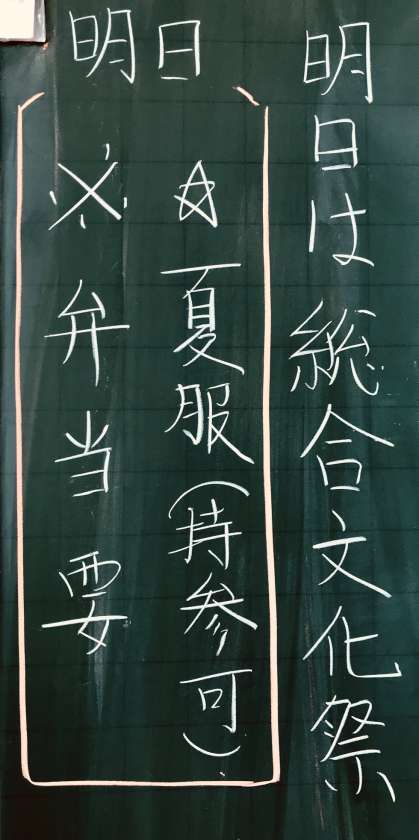 明日は総合文化祭
明日
☆夏服(持参可)
※弁当要